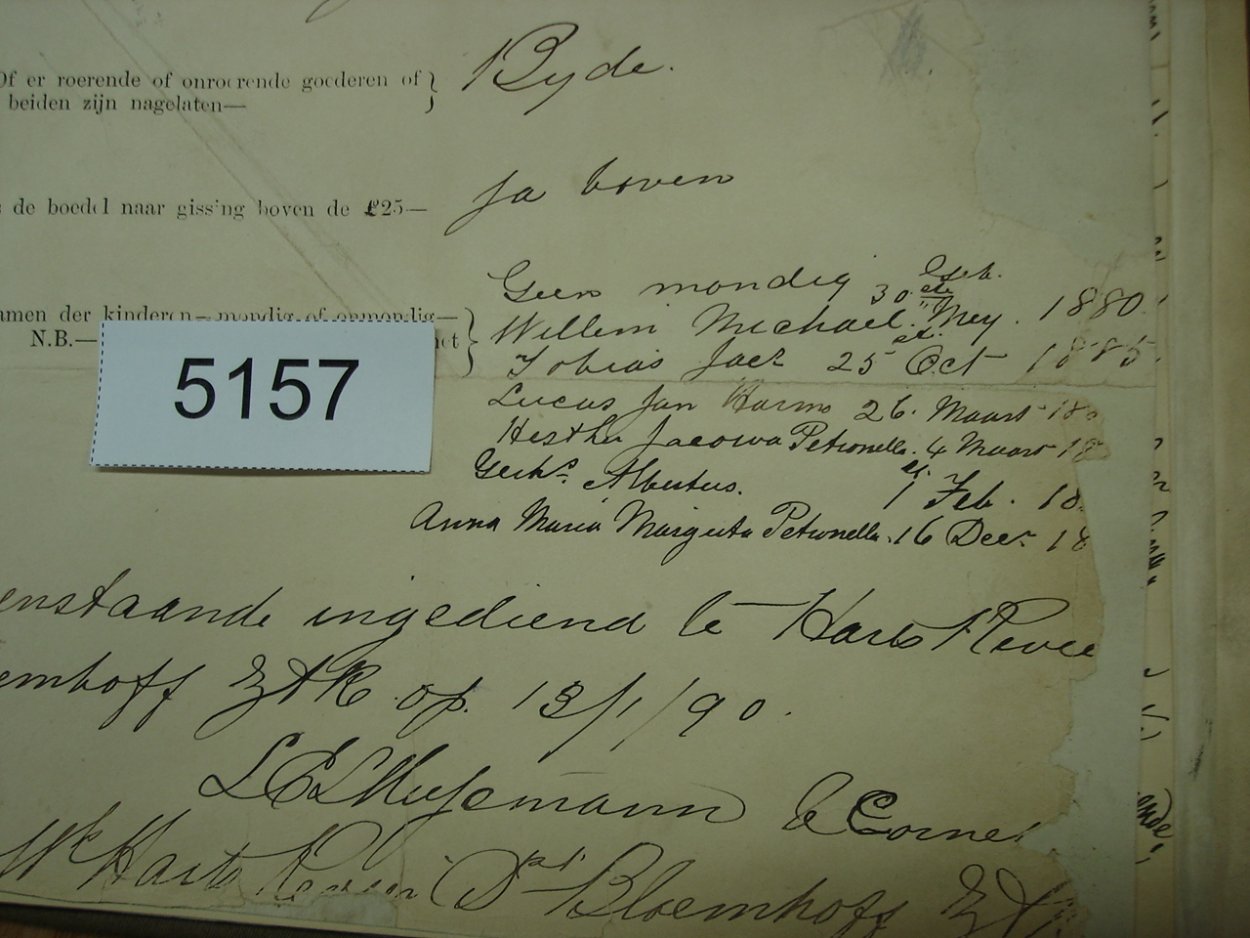 Of er roerende of onroerende goederen of
beiden zijn nagelaten—
Byde.
de boedel naar gissing boven de £25—
Ja boven
Geen mondig Geb.
amen der kinderen—mondig of onmondig—
N.B.—
5157
Willem Michael 30 Mey. 1880
Tobias Jacs 25 Oct 1885
Lucas Jan Harms 26. Maart 18
Hesther Jacowa Petronella. 4 Maart 18
Albertus. 1 Feb. 18
Anna Maria Margreta Petronella. 16 Decr 18
enstaande ingediend te Harts Revie
emhoff ZAR op. 13/1/90.
L E Huysemann
Harts Bloemhoff